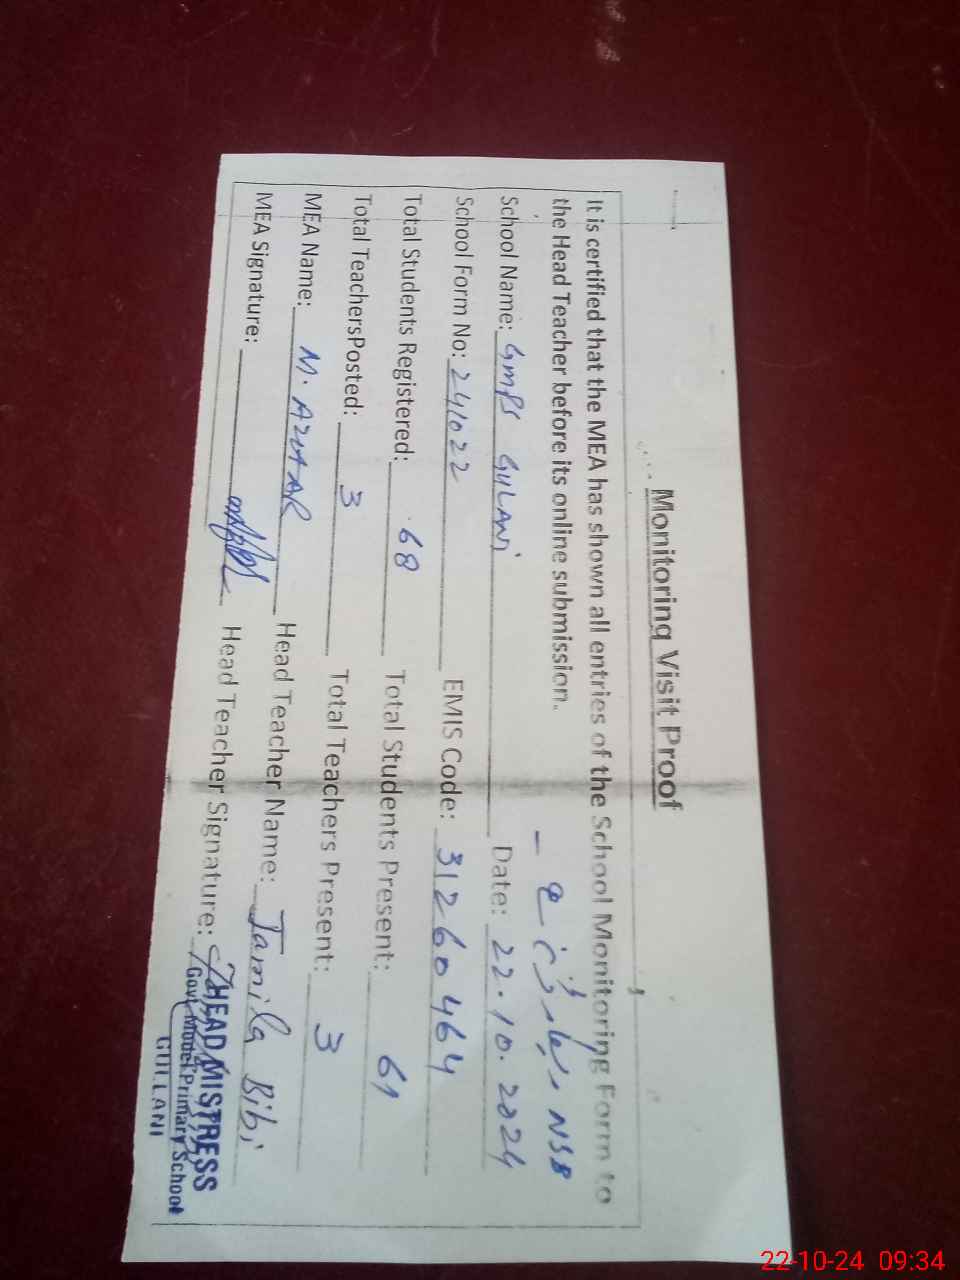 Monitoring Visit Proof
It is certified that the MEA has shown all entries of the School Monitoring Form to
the Head Teacher before its online submission.
NSB
School Name: GMPS GULANI Date: 22.10.2024
School Form No: 241022 EMIS Code: 31260464
Total Students Registered: 68 Total Students Present: 61
Total TeachersPosted: 3 Total Teachers Present: 3
MEA Name: M. AZHAR Head Teacher Name: Jamila Bibi
MEA Signature: Head Teacher Signature:
HEAD MISTRESS
Govt Model Primary School
GULLANI
22-10-24 09:34